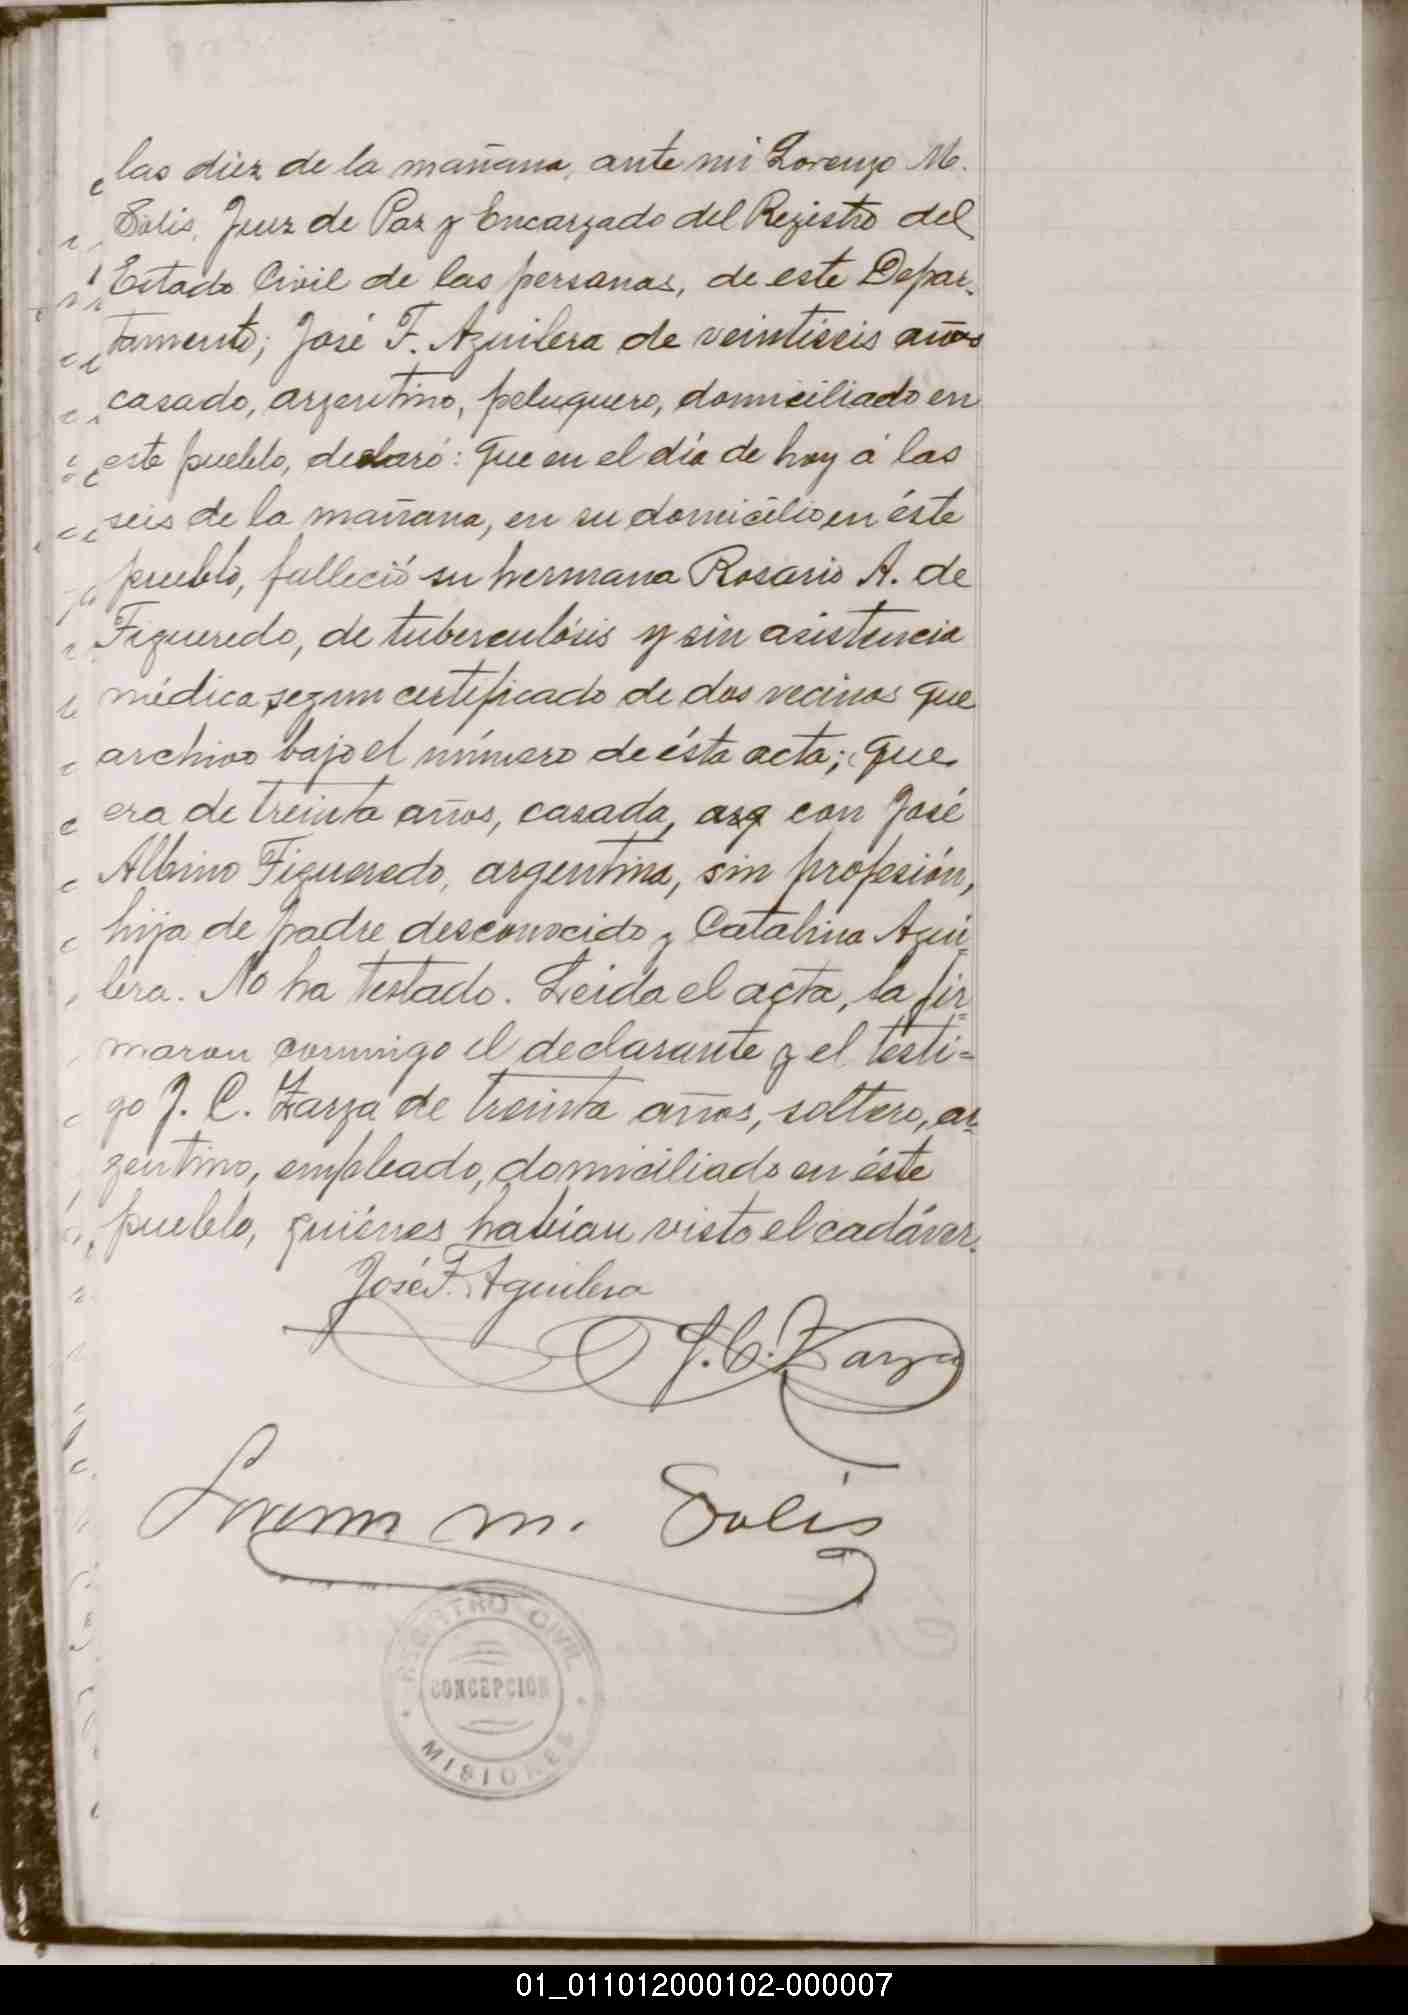 las diez de la mañana, ante mi Lorenzo M.
Solis, Juez de Paz y Encargado del Registro del
Estado Civil de las personas, de este Depar-
tamento; José F. Aguilera de veintiseis años
casado, argentino, peluquero, domiciliado en
este pueblo, declaró: que en el día de hoy á las
seis de la mañana, en su domicilio en éste
pueblo, falleció su hermana Rosario A. de
Figueredo, de tuberculósis y sin asistencia
médica segun certificado de dos vecinos que
archivo bajo el número de ésta acta; que
era de treinta años, casada, arg con José
Albino Figueredo, argentina, sin profesión,
hija de padre desconocido y Catalina Agui-
lera. No ha testado. Leida el acta, la fir-
maron conmigo el declarante y el testi-
go J. C. Zarza de treinta años, soltero, ar-
gentino, empleado, domiciliado en éste
pueblo, quiénes habían visto el cadáver.
José F. Aguilera
J. C. Zarza
Lorenzo M. Solis
REGISTRO CIVIL
CONCEPCION
MISIONES
01_011012000102-000007